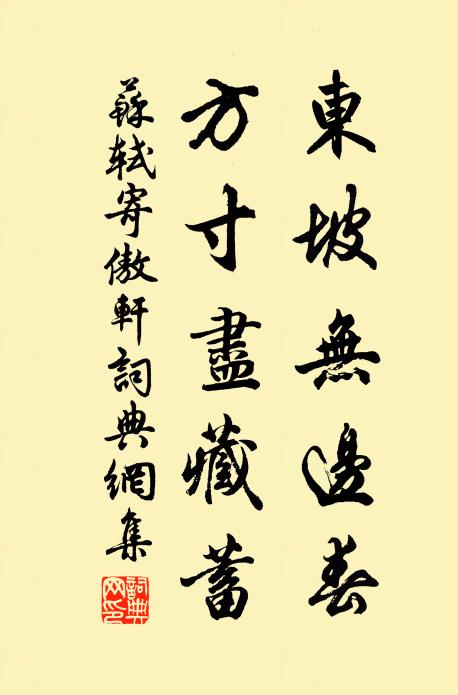 東坡無邊春
方寸盡藏蓄
蘇軾寄傲軒詞典網集
詞典